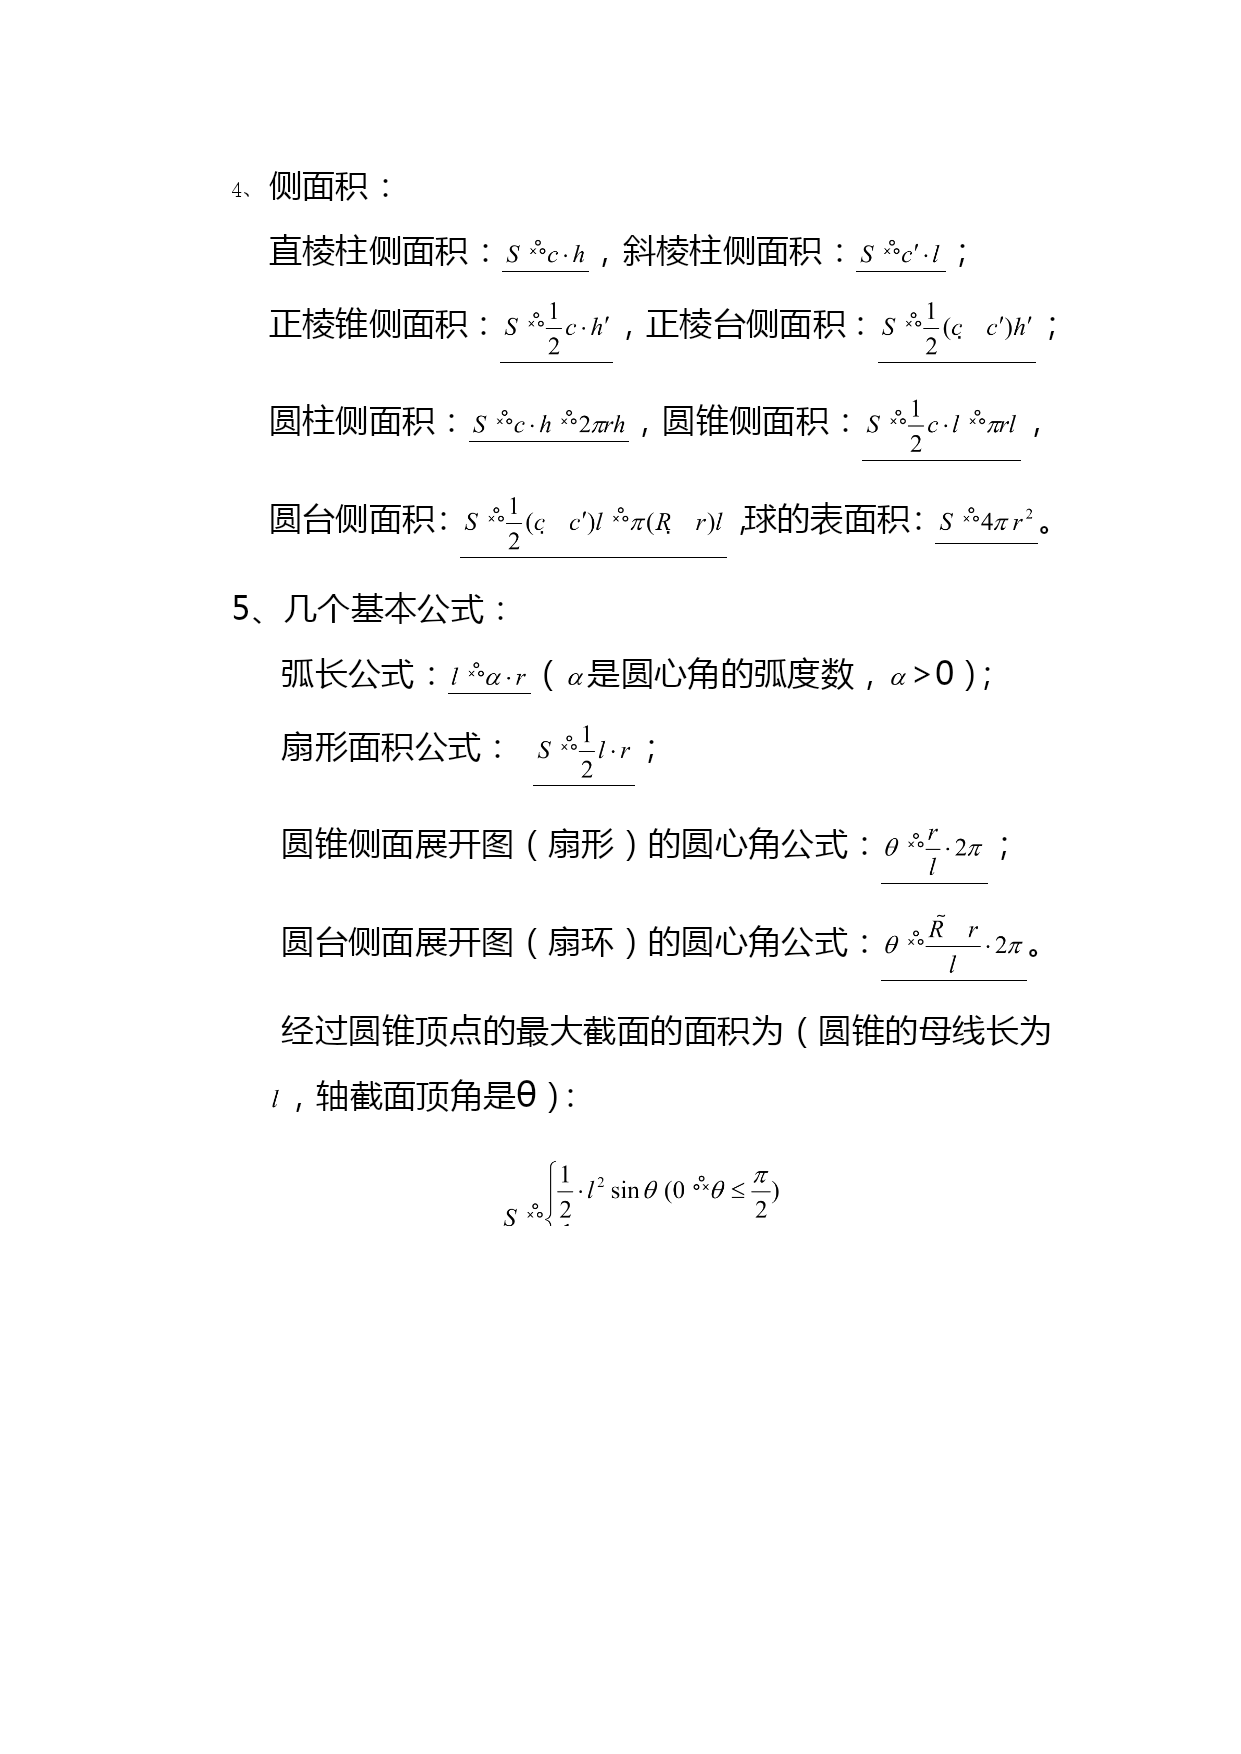 4、侧面积：
直棱柱侧面积：S ×°∘c·h，斜棱柱侧面积：S ×°∘c′·l；
正棱锥侧面积：S ×°∘1/2 c·h′，正棱台侧面积：S ×°∘1/2(c̣ c′)h′；
圆柱侧面积：S ×°∘c·h ×°∘2πrh，圆锥侧面积：S ×°∘1/2 c·l ×°∘πrl，
圆台侧面积：S ×°∘1/2(c̣ c′)l ×°∘π(Ṛ r)l，球的表面积：S ×°∘4πr²。
5、几个基本公式：
弧长公式：l ×°∘α·r（α是圆心角的弧度数，α>0）；
扇形面积公式： S ×°∘1/2 l·r；
圆锥侧面展开图（扇形）的圆心角公式：θ ×°∘r/l·2π；
圆台侧面展开图（扇环）的圆心角公式：θ ×°∘R̃ r/l·2π。
经过圆锥顶点的最大截面的面积为（圆锥的母线长为
l，轴截面顶角是θ）：
S ×°∘{1/2·l² sinθ (0 ∘°×θ≤π/2)